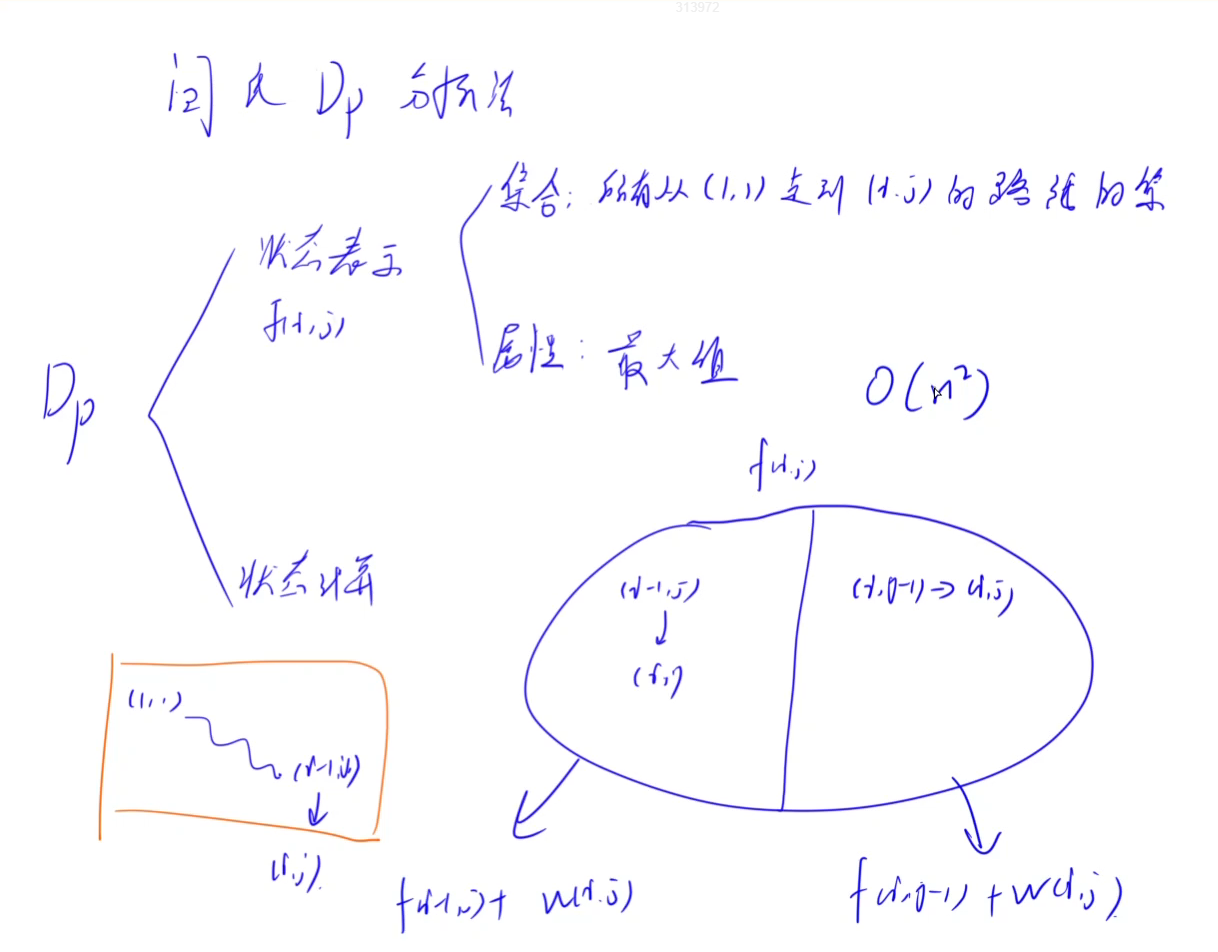 313972
闫氏 Dp 分析法
集合: 所有从 (1,1) 走到 (i.j) 的路线的集
状态表示
f(i,j)
属性: 最大值
O(n²)
Dp
f(i.j)
状态计算
(i-1,j)
↓
(i,j)
(i,j-1) → (i,j)
(1,1)
(i-1,j)
↓
(i,j)
f(i-1,j)+ w(i.j)
f(i,j-1) + w(i,j)